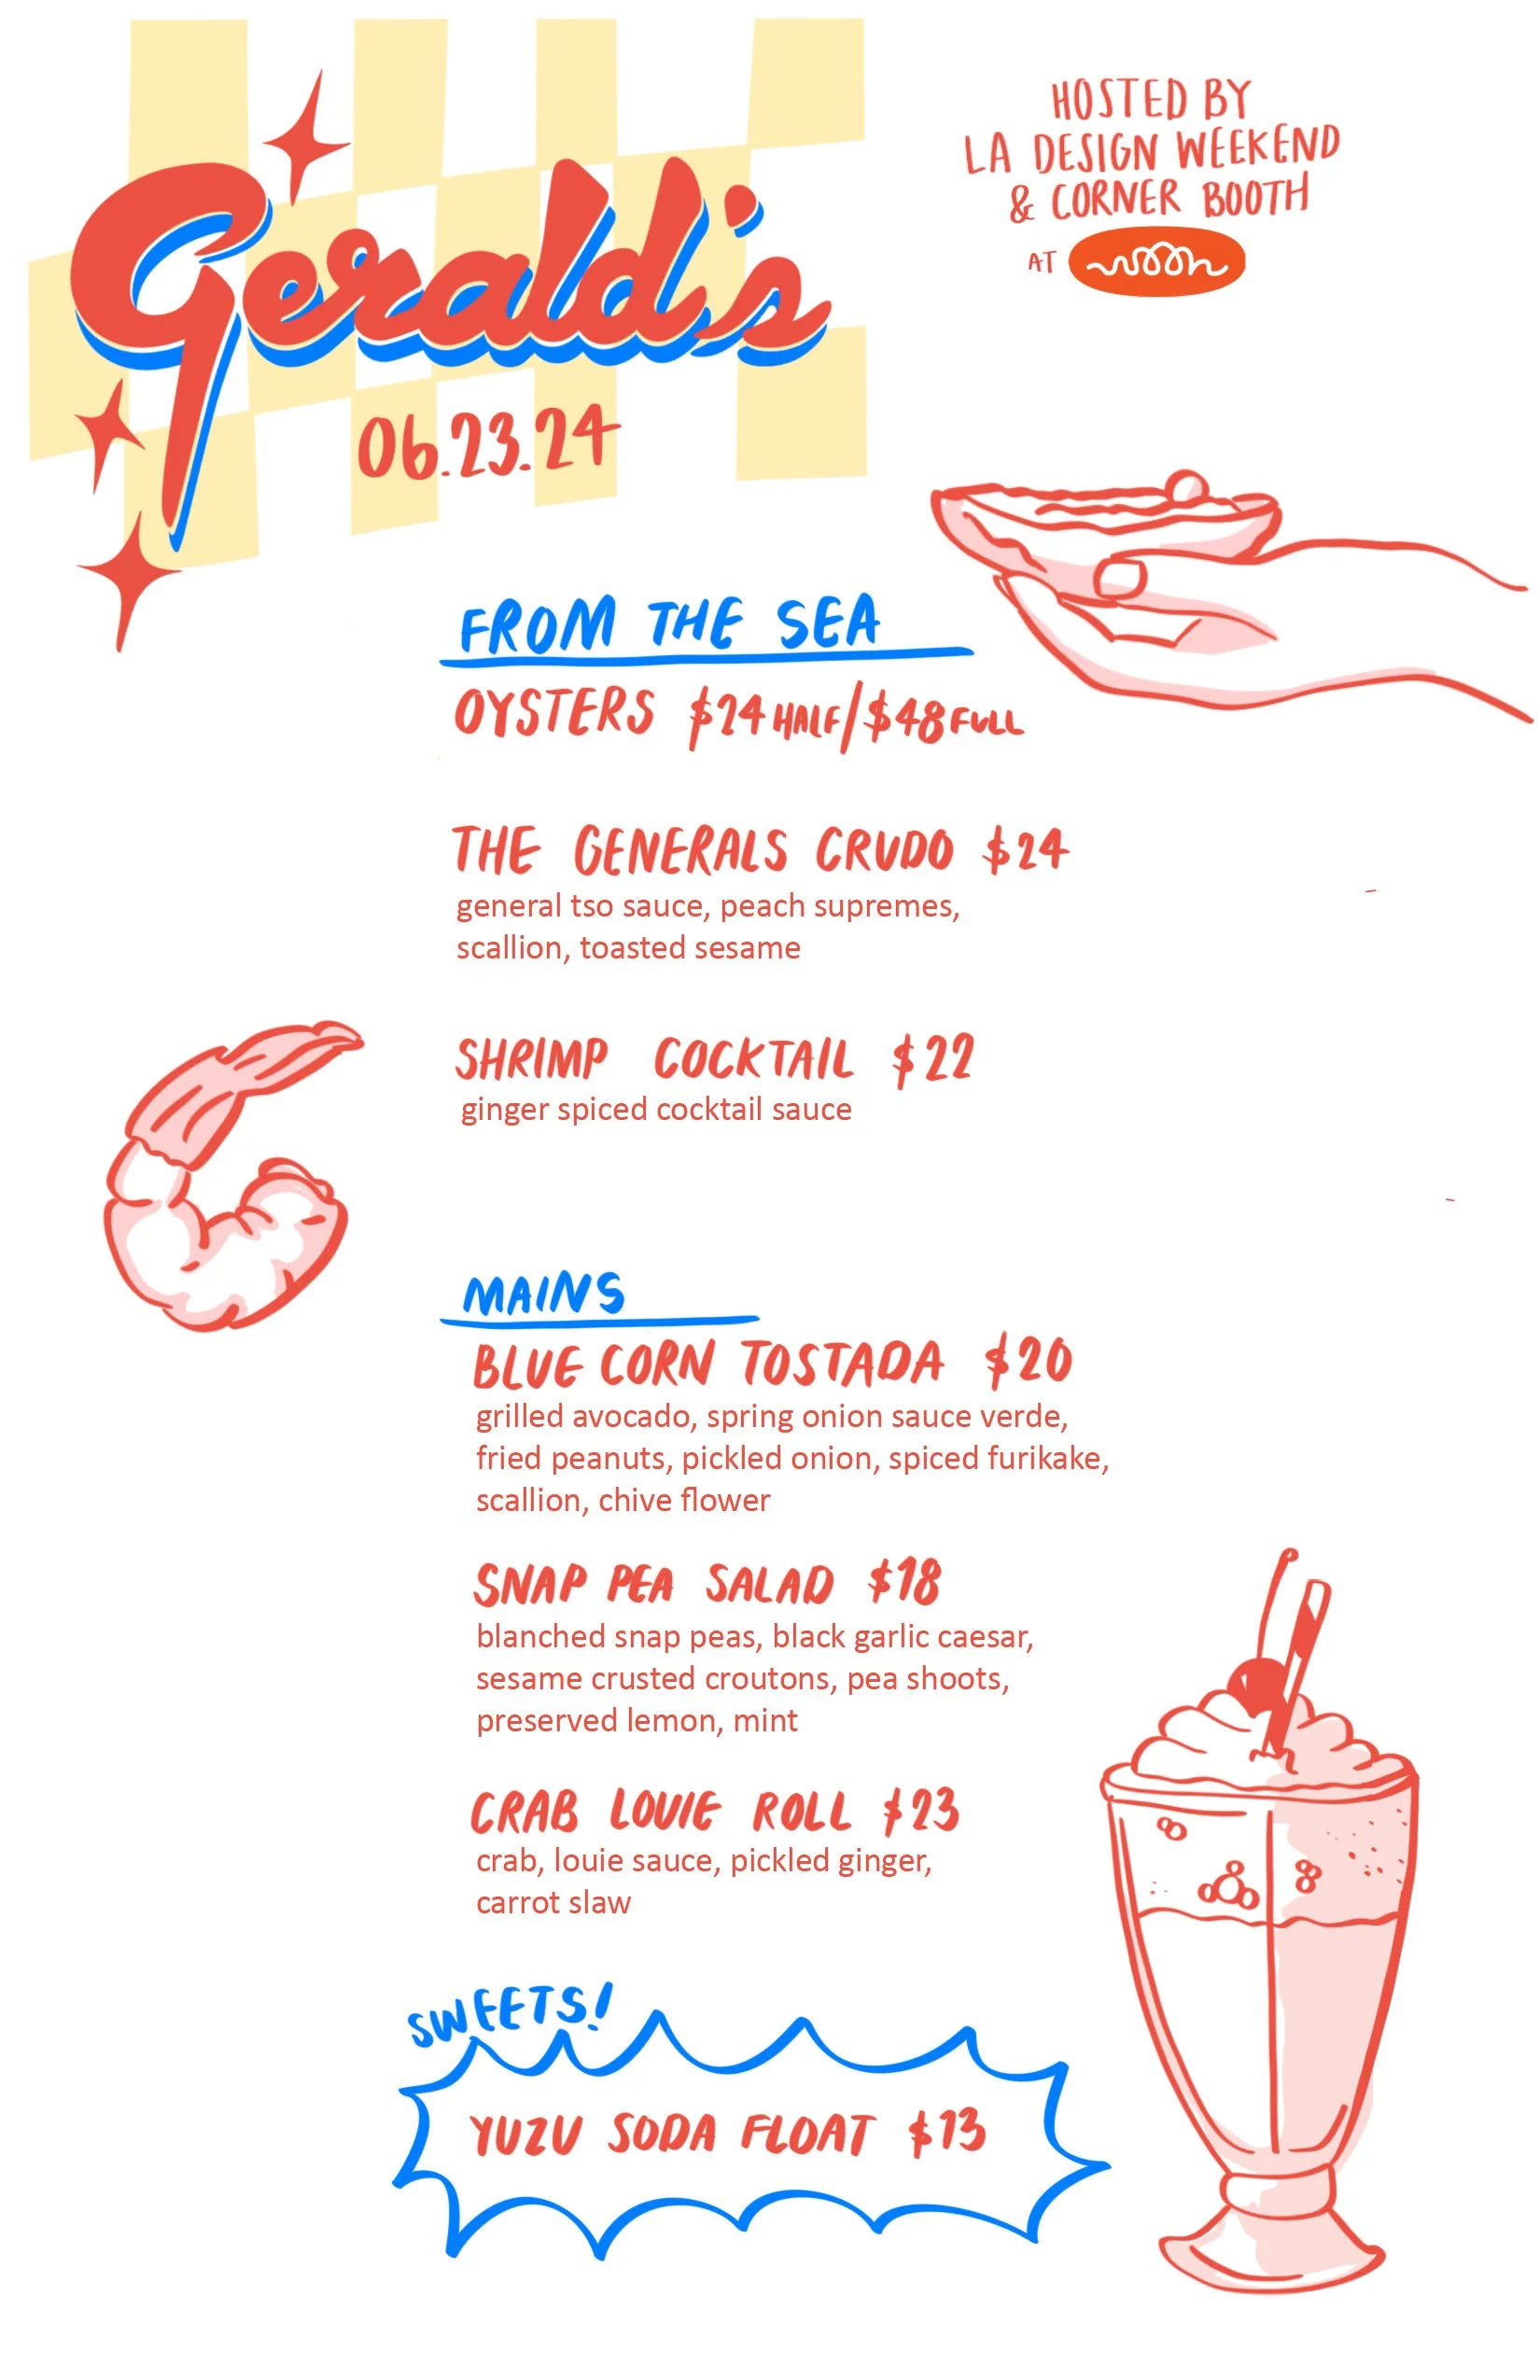 Gerald's
06.23.24
HOSTED BY
LA DESIGN WEEKEND
& CORNER BOOTH
AT woon
FROM THE SEA
OYSTERS $24 HALF/$48 FULL
THE GENERALS CRUDO $24
general tso sauce, peach supremes,
scallion, toasted sesame
SHRIMP COCKTAIL $22
ginger spiced cocktail sauce
MAINS
BLUE CORN TOSTADA $20
grilled avocado, spring onion sauce verde,
fried peanuts, pickled onion, spiced furikake,
scallion, chive flower
SNAP PEA SALAD $18
blanched snap peas, black garlic caesar,
sesame crusted croutons, pea shoots,
preserved lemon, mint
CRAB LOUIE ROLL $23
crab, louie sauce, pickled ginger,
carrot slaw
SWEETS!
YUZU SODA FLOAT $13